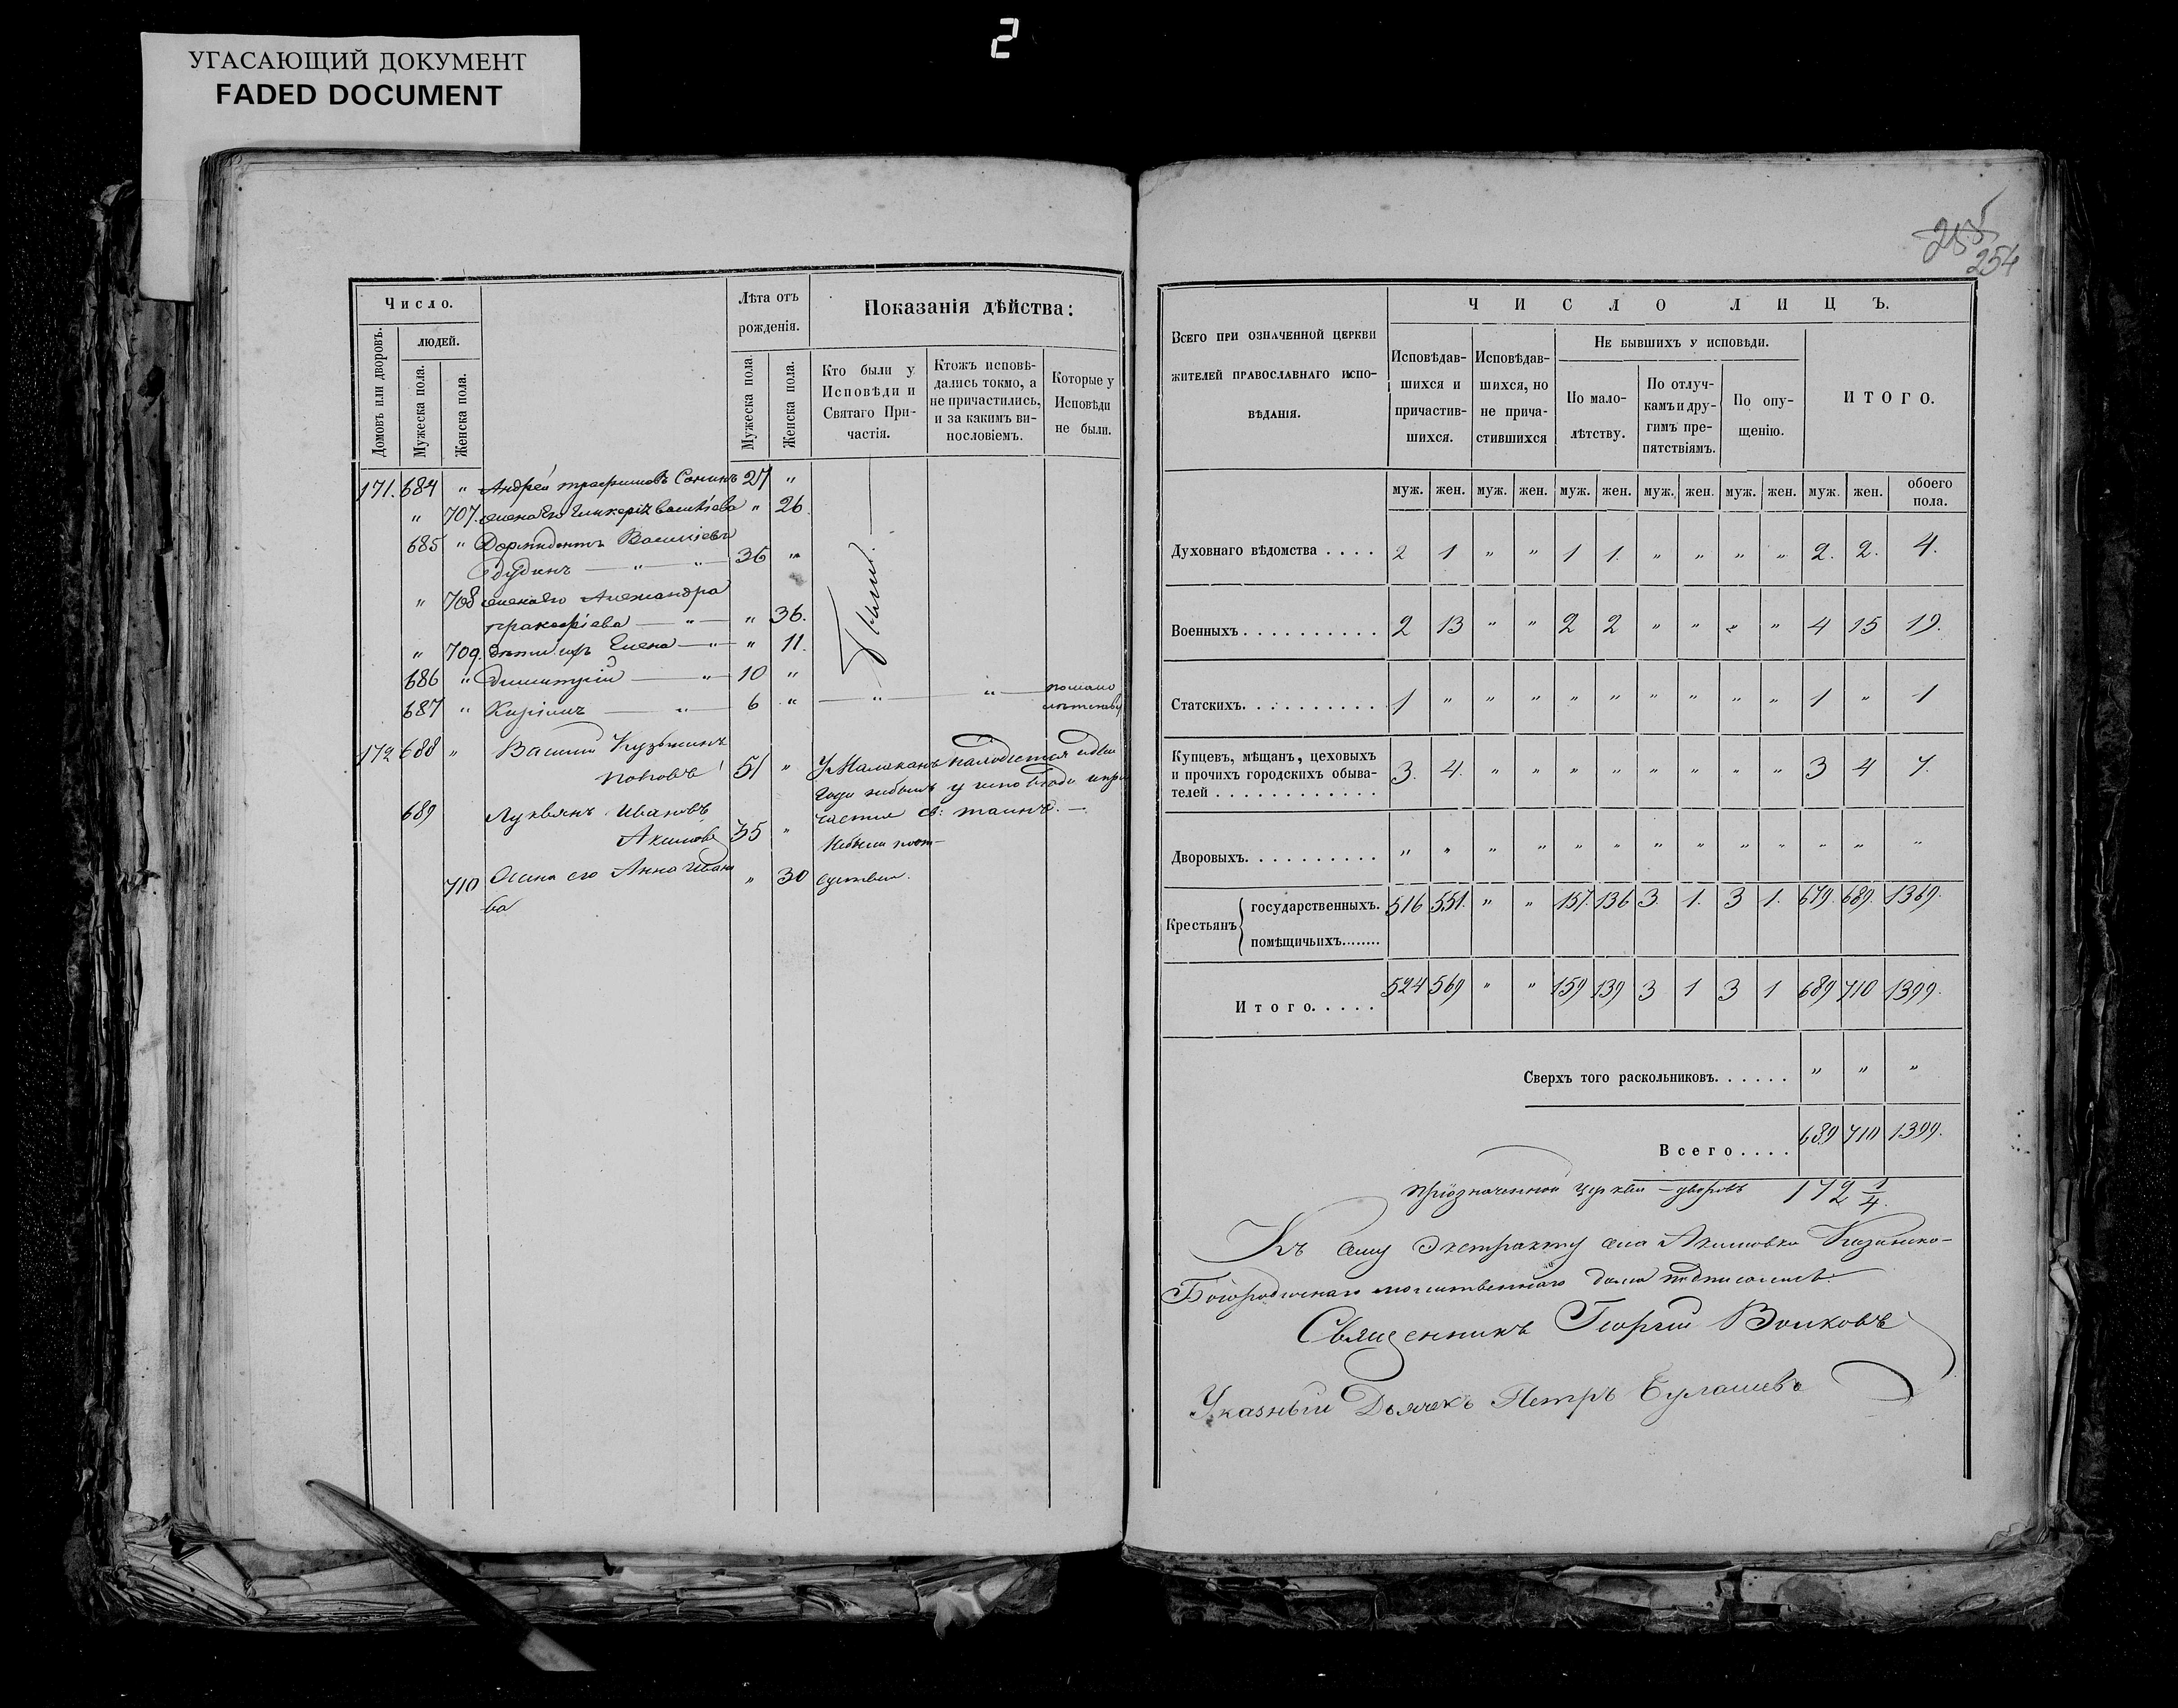 2
УГАСАЮЩИЙ ДОКУМЕНТ
FADED DOCUMENT
Число.
Домовъ или дворовъ.
людей.
Мужеска пола.
Женска пола.
Лѣта отъ
рожденія.
Мужеска пола.
Женска пола.
Показанія дѣйства:
Кто были у
Исповѣди и
Святаго При-
частія.
Ктожъ исповѣ-
дались токмо, а
не причастились,
и за какимъ ви-
нословіемъ.
Которые у
Исповѣди
не были.
171. 684 " Андрей Сонинъ 27 "
" 707. жена его Василіева " 26.
685 " Дормидонтъ Васильевъ
36 "
" 708 жена его Александра
пракофіева — " — " 36.
" 709. дѣти ихъ Елена — " — " 11.
686 " Димитрій — " — 10 "
687 " — " — 6 " — " — " — помало
лѣтству
Были.
172 688 " Василий Кузьминъ
Поповъ 51 "
689 Лукьянъ Ивановъ
Акимовъ 35 "
710 Жена его Анна Ивано " 30
ва
У Малаканъ
года небылъ у
частия св: таинъ. —
Небыли по от-
сутствію.
255
254
Всего при означенной церкви
жителей православнаго испо-
вѣданія.
ЧИСЛО ЛИЦЪ.
Исповѣдав-
шихся и
причастив-
шихся.
Исповѣдав-
шихся, но
не прича-
стившихся
Не бывшихъ у исповѣди.
По мало-
лѣтству.
По отлуч-
камъ и дру-
гимъ пре-
пятствіямъ.
По опу-
щенію.
ИТОГО.
муж. жен. муж. жен. муж. жен. муж. жен. муж. жен. муж. жен. обоего
пола.
Духовнаго вѣдомства . . . . 2 1 " " 1 1. " " " " 2. 2. 4.
Военныхъ . . . . . . . . . . . 2 13 " " 2 2 " " " " 4 15 19.
Статскихъ. . . . . . . . . . . 1 " " " " " " " " " 1 " 1
Купцевъ, мѣщанъ, цеховыхъ
и прочихъ городскихъ обыва-
телей . . . . . . . . . . . . . 3. 4. " " " " " " " " 3 4 7.
Дворовыхъ. . . . . . . . . . . " " " " " " " " " " " " "
Крестьянъ
государственныхъ. 516 551. " " 157. 136 3. 1. 3 1. 679. 689. 1369.
помѣщичьихъ........
Итого. . . . . 524 569 " " 159 139 3 1 3 1 689 710 1399.
Сверхъ того раскольниковъ. . . . . . " " "
Всего. . . . 689 710 1399.
приозначенной церкви — дворовъ 172 1/4.
Къ сему Экстракту села Акимовки Казанско-
Богородичнаго молитвеннаго дома подписались:
Священникъ Георгий Волковъ
Указный Дьячекъ Петръ Булашевъ